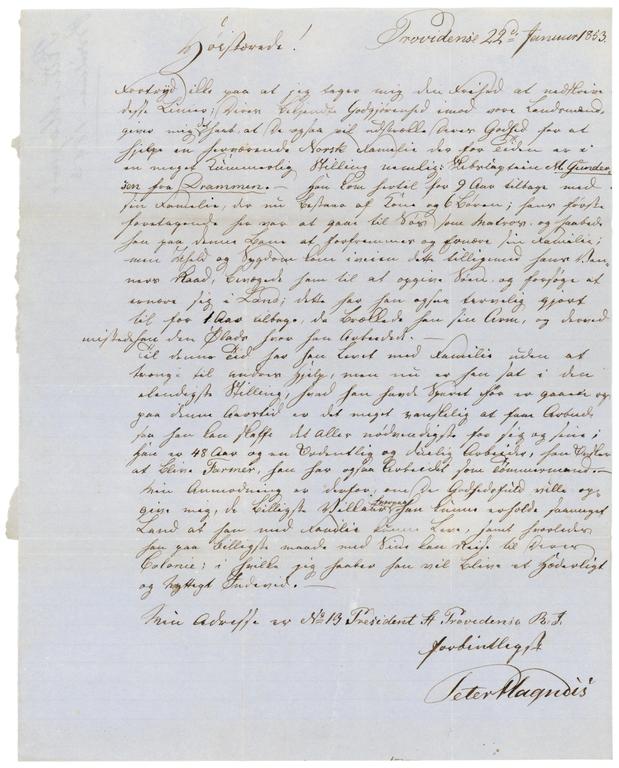 Providense 22de Januar 1853.
Høistærede!
Fortryd ikke paa at jeg tager mig den Friehed at nedskrive
disse Linier; Deres bekjendte Godgjørenhed imod vore Landsmænd,
giver mig Haab, at De ogsaa vil udstrække Deres Godhed for at
hjelpe en herværende Norsk Familie der for Tiden er i
en meget kummerlig Stilling nemlig: M. Gunder-
sen fra Drammen. — Han kom hertil for 9 Aar tilbage med
sin Familie, der nu bestaar af Kone og 6 Børn; hans første
foretagende her var at gaae til Søs som Matros, og haabede
han paa denne Bane at forfremmes og ernære sin Familie;
men Uheld og Sygdom kom iveien dette tilligemed hans Ven-
ners Raad, bevægede ham til at opgive Søen, og forsøge at
ernære sig i Land; dette har han ogsaa tarvelig gjort
til for 1 Aar tilbage, da brækkede han sin Arm, og derved
mistede han den Plads hvor han Arbeidede. —
Til denne Tid har han levet med Familie uden at
trænge til andres hjelp, men nu er han sat i den
elendigste Stilling, hvad han havde sparet er gaaet og
paa denne Aarstid er det meget vanskelig at faae Arbeide
saa han kan skaffe det aller nødvendigste for sig og sine;
han er 48 Aar og en ordentlig og duelig Arbeider, han ønsker
at blive Farmer, han har ogsaa Arbeidet som Tømmermand. —
Min Anmodning er derfor; om De Godhedsfuld ville op-
give meg, de billigste Vilkaar hvorpaa han kunne erholde saameget
Land at han med Familie kunne leve, samt hvorledes
han paa billigste maade med Sine kan Reise til Deres
Colonie; i hvilke jeg haaber han vil blive et hæderligt
og nyttigt Indevid. —
Min Adresse er No 13 President St Providense R. I.
forbindtligst
Peter Magnus